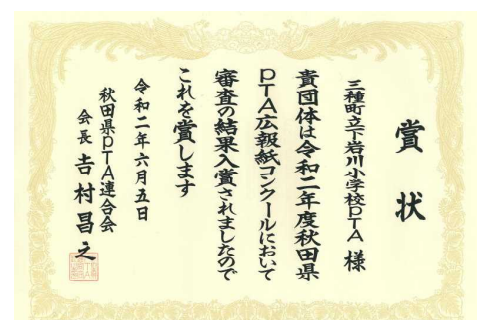 賞状
三種町立下岩川小学校PTA 様
貴団体は令和二年度秋田県
PTA広報紙コンクールにおいて
審査の結果入賞されましたので
これを賞します
令和二年六月五日
秋田県PTA連合会
会長 吉村昌之